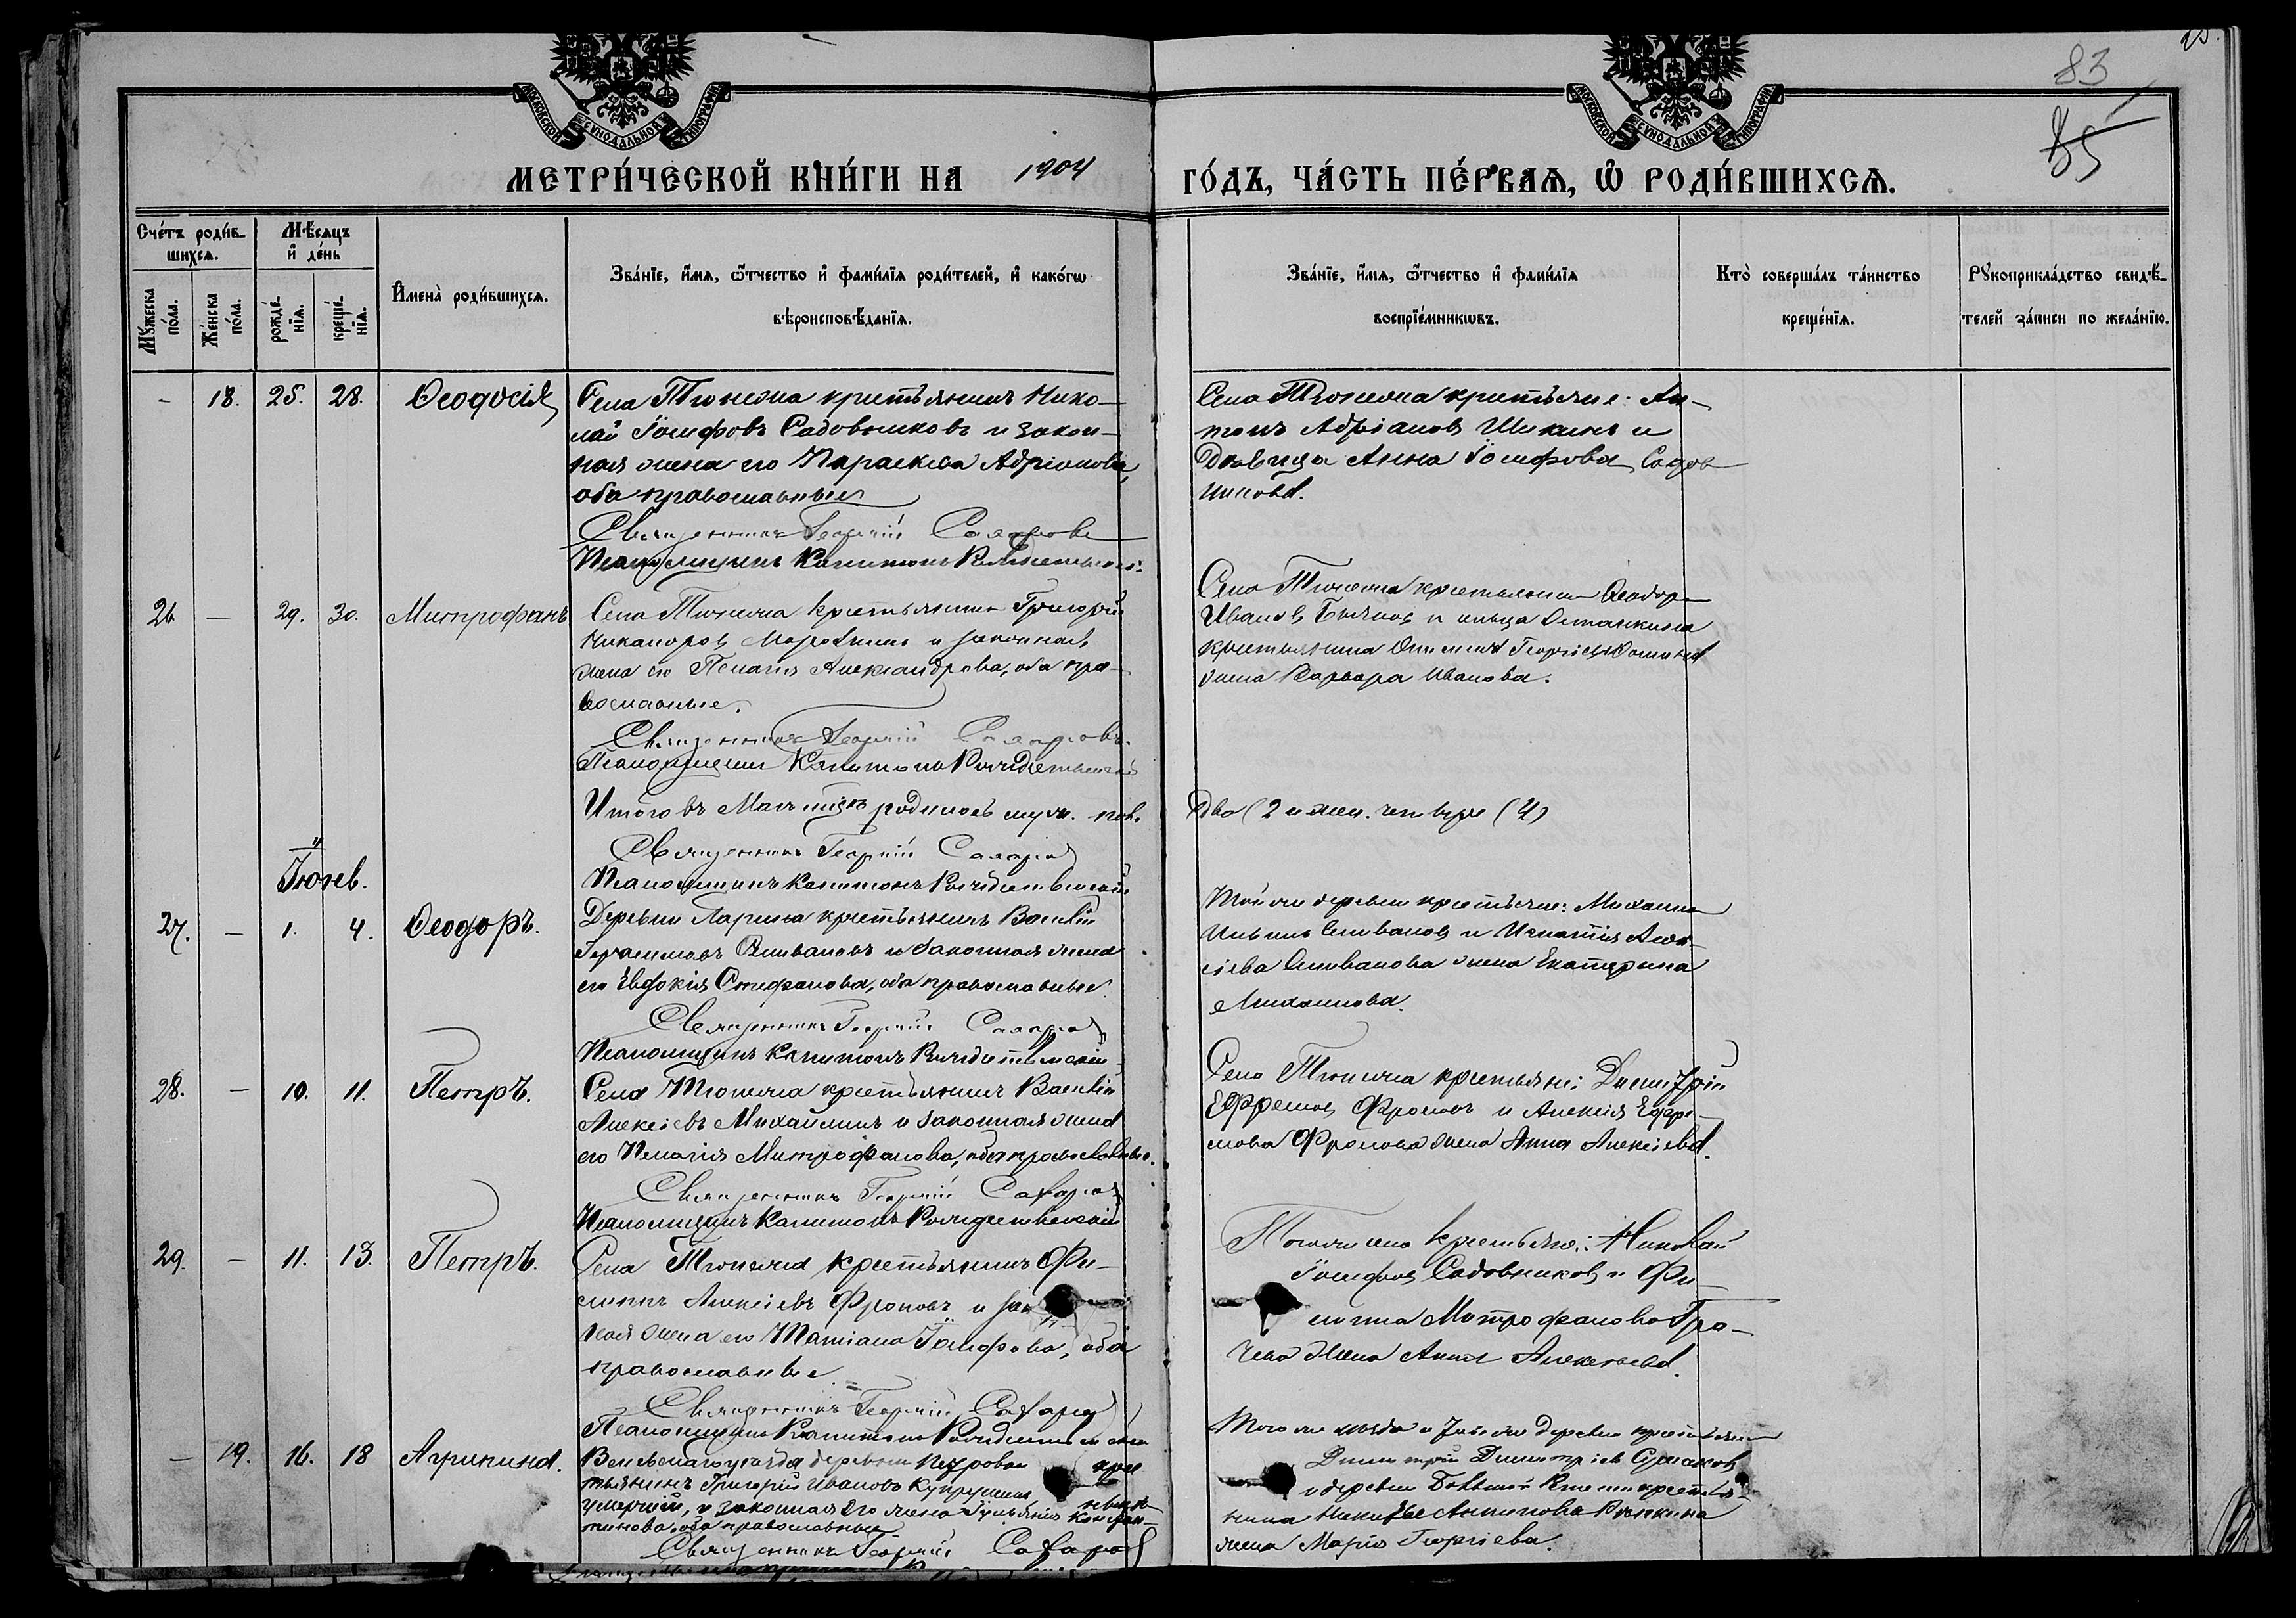 25.
83
85
МОСКОВСКОЙ СѴНОДАЛЬНОЙ ТИПОГРАФІИ
МОСКОВСКОЙ СѴНОДАЛЬНОЙ ТИПОГРАФІИ
МЕТРИ́ЧЕСКОЙ КНИ́ГИ НА 1904
ГО́ДЪ, ЧА́СТЬ ПЕ́РВАЯ, Ѡ РОДИ́ВШИХСЯ.
Сче́тъ роди́в-
шихся.
Мꙋ́жеска по́ла.
Же́нска по́ла.
Мѣ́сяцъ
и҆ де́нь
рожде́-
нїѧ.
креще́-
нїѧ.
И҆мена̀ роди́вшихсѧ.
Зва́нїе, и҆́мѧ, ѻ҆́тчество и҆ фами́лїѧ роди́телей, и҆ како́гѡ
вѣроисповѣ́данїѧ.
Зва́нїе, и҆́мѧ, ѻ҆́тчество и҆ фами́лїѧ
воспрїе́мникѡвъ.
Кто̀ соверша́лъ та́инство
креще́нїѧ.
Рꙋкоприкла́дство свидѣ́-
телей за́писи по жела́нїю.
- 18. 25. 28. Ѳеодосія
Села Тюнежа крестьянинъ Нико-
лай Іосифовъ Садовниковъ и закон-
ная жена его Параскева Адріанова,
оба православные
Священникъ Георгій Сахаровъ
Псаломщикъ Капитонъ Рождественскій
Села Тюнежа крестьяне: Ан-
тонъ Адріановъ Шикинъ и
Дѣвица Анна Іосифова Садов-
никова.
26 - 29. 30. Митрофанъ
Села Тюнежа крестьянинъ Григорій
Никаноровъ и законная
жена его Пелагія Александрова, оба пра-
вославные.
Священникъ Георгій Сахаровъ.
Псаломщикъ Капитонъ Рождественскій
Села Тюнежа крестьянинъ Ѳеодоръ
Ивановъ и
крестьянина
жена Варвара Иванова.
Итого въ Маѣ родилось муж. пола
Два (2 и жен. четыре (4)
Священникъ Георгій Сахаровъ
Псаломщикъ Капитонъ Рождественскій
Іюнь.
27. - 1. 4. Ѳеодоръ.
Деревни Ларина крестьянинъ Василій
Герасимовъ Селивановъ и законная жена
его Евдокія Стефанова, оба православные
Священникъ Георгій Сахаровъ
Псаломщикъ Капитонъ Рождественскій
Той же деревни крестьяне: Михаилъ
Ильинъ Селивановъ и Игнатія Алек-
сіева Селиванова жена Екатерина
Михаилова.
28. - 10. 11. Петръ.
Села Тюнежа крестьянинъ Василій
Алексіевъ Михайлинъ и законная жена
его Пелагія Митрофанова, оба православные.
Священникъ Георгій Сахаровъ
Псаломщикъ Капитонъ Рождественскій
Села Тюнежа крестьяне: Димитрій
Ефремовъ Фроловъ и Алексія Ефре-
мова Фролова жена Анна Алексіева.
29. - 11. 13. Петръ.
Села Тюнежа крестьянинъ Фи-
липпъ Алексіевъ Фроловъ и зак
ная жена его Татіана Іосифова, оба
православные
Священникъ Георгій Сахаровъ
Псаломщикъ Капитонъ Рождественскій
Того же села крестьяне: Николай
Іосифовъ Садовниковъ и Фи-
липпа Митрофанова Гра-
чева жена Анна Алексѣева.
- 19. 16. 18 Агрипина.
Веневскаго уѣзда деревни Петровки кре
стьянинъ Григорій Ивановъ
умершій, и законная его жена Констан-
тинова, оба православные
Священникъ Георгій Сахаровъ
Того же уѣзда и деревни крестьянинъ
Димитрій Димитріевъ
и деревни
Антипова
жена Марія Георгіева.